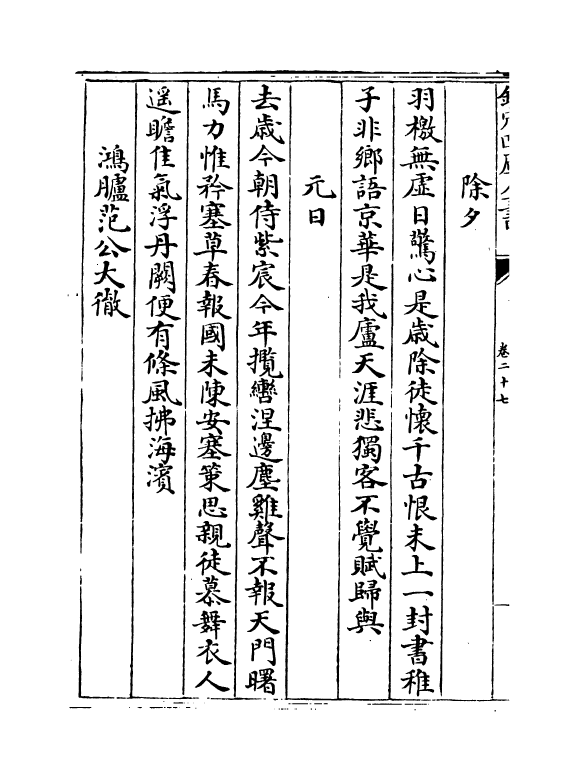 欽定四庫全書
卷二十七
除夕
羽檄無虛日驚心是歳除徒懷千古恨未上一封書稚
子非鄉語京華是我廬天涯悲獨客不覺賦歸與
元日
去歳今朝侍紫宸今年攬轡涅邊塵雞聲不報天門曙
馬力惟矜塞草春報國未陳安塞策思親徒慕舞衣人
遥瞻佳氣浮丹闕便有條風拂海濱
鴻臚范公大徹